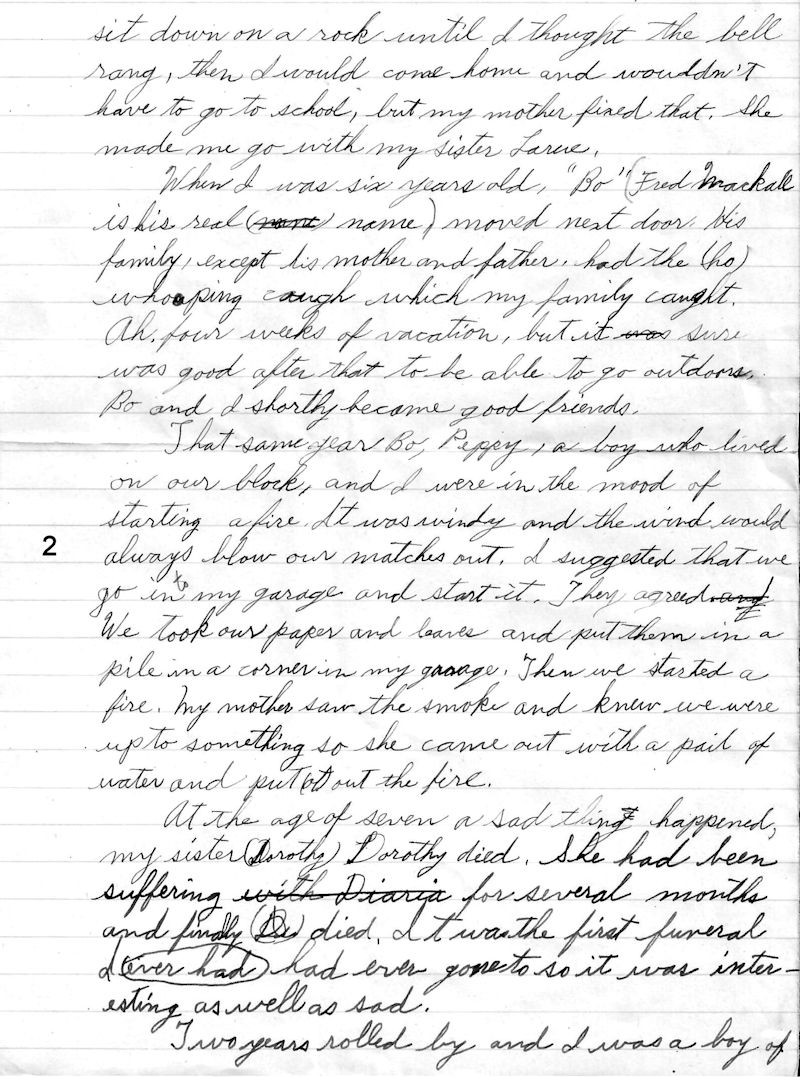 sit down on a rock until I thought the bell
rang, then I would come home and wouldn't
have to go to school, but my mother fixed that. She
made me go with my sister Larue.
When I was six years old, "Bo" (Fred Mackall
is his real (name) name) moved next door. His
family, except his mother and father, had the (ho)
whooping caugh which my family caught.
Ah, four weeks of vacation, but it was sure
was good after that to be able to go outdoors.
Bo and I shortly became good friends.
That same year Bo, Peppy, a boy who lived
on our block, and I were in the mood of
starting a fire. It was windy and the wind would
always blow our matches out. I suggested that we
2
go in to my garage and start it. They agreed and
We took our paper and leaves and put them in a
pile in a corner in my garage. Then we started a
fire. My mother saw the smoke and knew we were
up to something so she came out with a pail of
water and put (ot) out the fire.
At the age of seven a sad thing happened,
my sister (Dorothy) Dorothy died. She had been
suffering with Diaria for several months
and finally died. It was the first funeral
I (ever had) had ever gone to so it was inter-
esting as well as sad.
Two years rolled by and I was a boy of